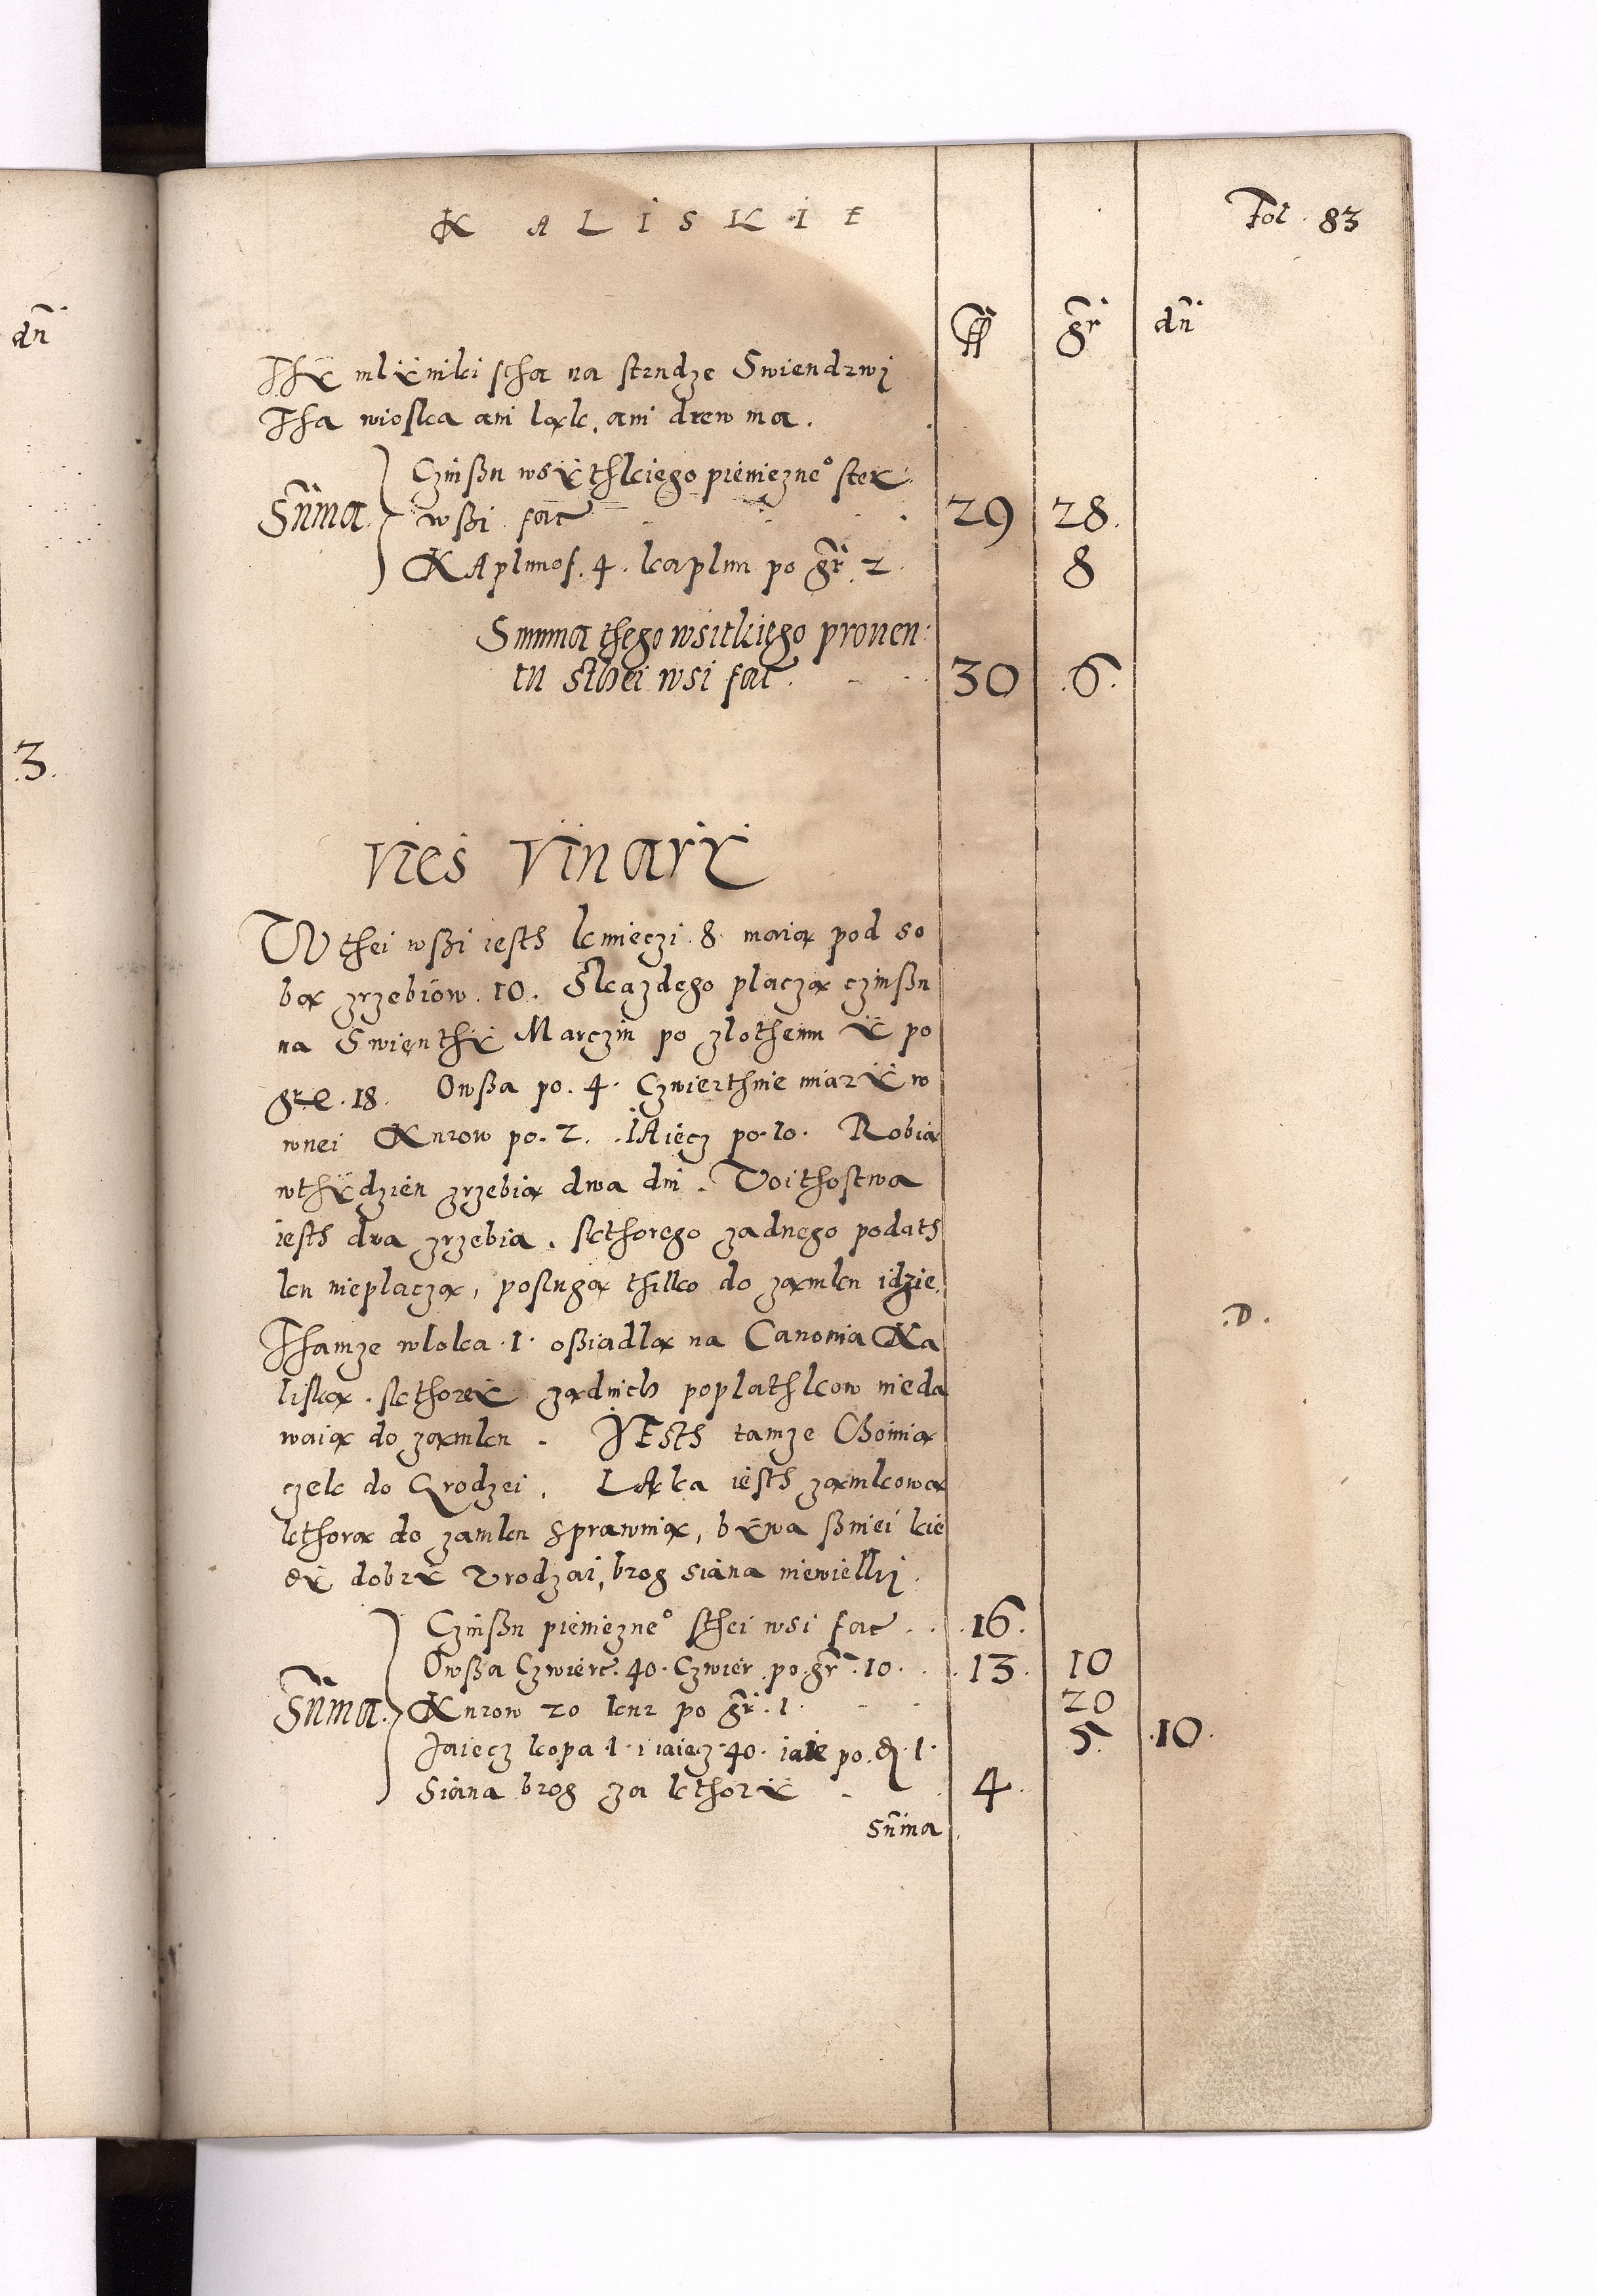 KALISKIE
Fol. 83
dñ
fl gr dñ
Thÿ mlÿniki stha na strudze Swiendrwi
Tha wioska ani ląk, ani drew ma.
Czinßu wsÿthkiego pieniezne° stex
wßi fac 29 28.
Sum̃a
KAplunof. 4. kaplun po gr̃ 2. 8
Summa thego wsitkiego prouen:
tu sthei wsi fac. 30 .6.
3.
Vies Vinarÿ
W thei wßi iesth kmieczi .8. maią pod so
bą zrzebiow .10. Skazdego placzą czinßu
na Swienthÿ Marczin po zlothemu ÿ po
gr .18. Owßa po .4. Czwierthnie miarÿ w
wnei Kurow po .2. IAiecz po .20. Robią
wthÿdzien zrzebią dwa dni. Voithostwa
iesth dwa zrzebia. skthorego zadnego podath
ku nieplaczą, poslugą thilko do zamku idzie.
.D.
Thamze wloka .1. oßiadlą na Canonia Ka
liską. skthoreÿ zadnich poplathkow nieda
waią do zamku. IEsth tamze Choinia
czek do Grodzei. LAka iesth zamkowa
kthorą do zamku sprawnią, bÿwa ßniei kie
dÿ dobrÿ vrodzai, brog siana niewielki.
Czinßu pieniezne° sthei wsi fac .16.
Owßa Czwiert. 40. Czwier. po gr̃ .10. .13. 10
Sum̃a
Kurow 20 kur po gr̃ .1. 20
Jaiecz kopa .1. i iaiecz .40. iaie po .1. 5. .10.
Siana brog za kthorÿ 4.
sum̃a